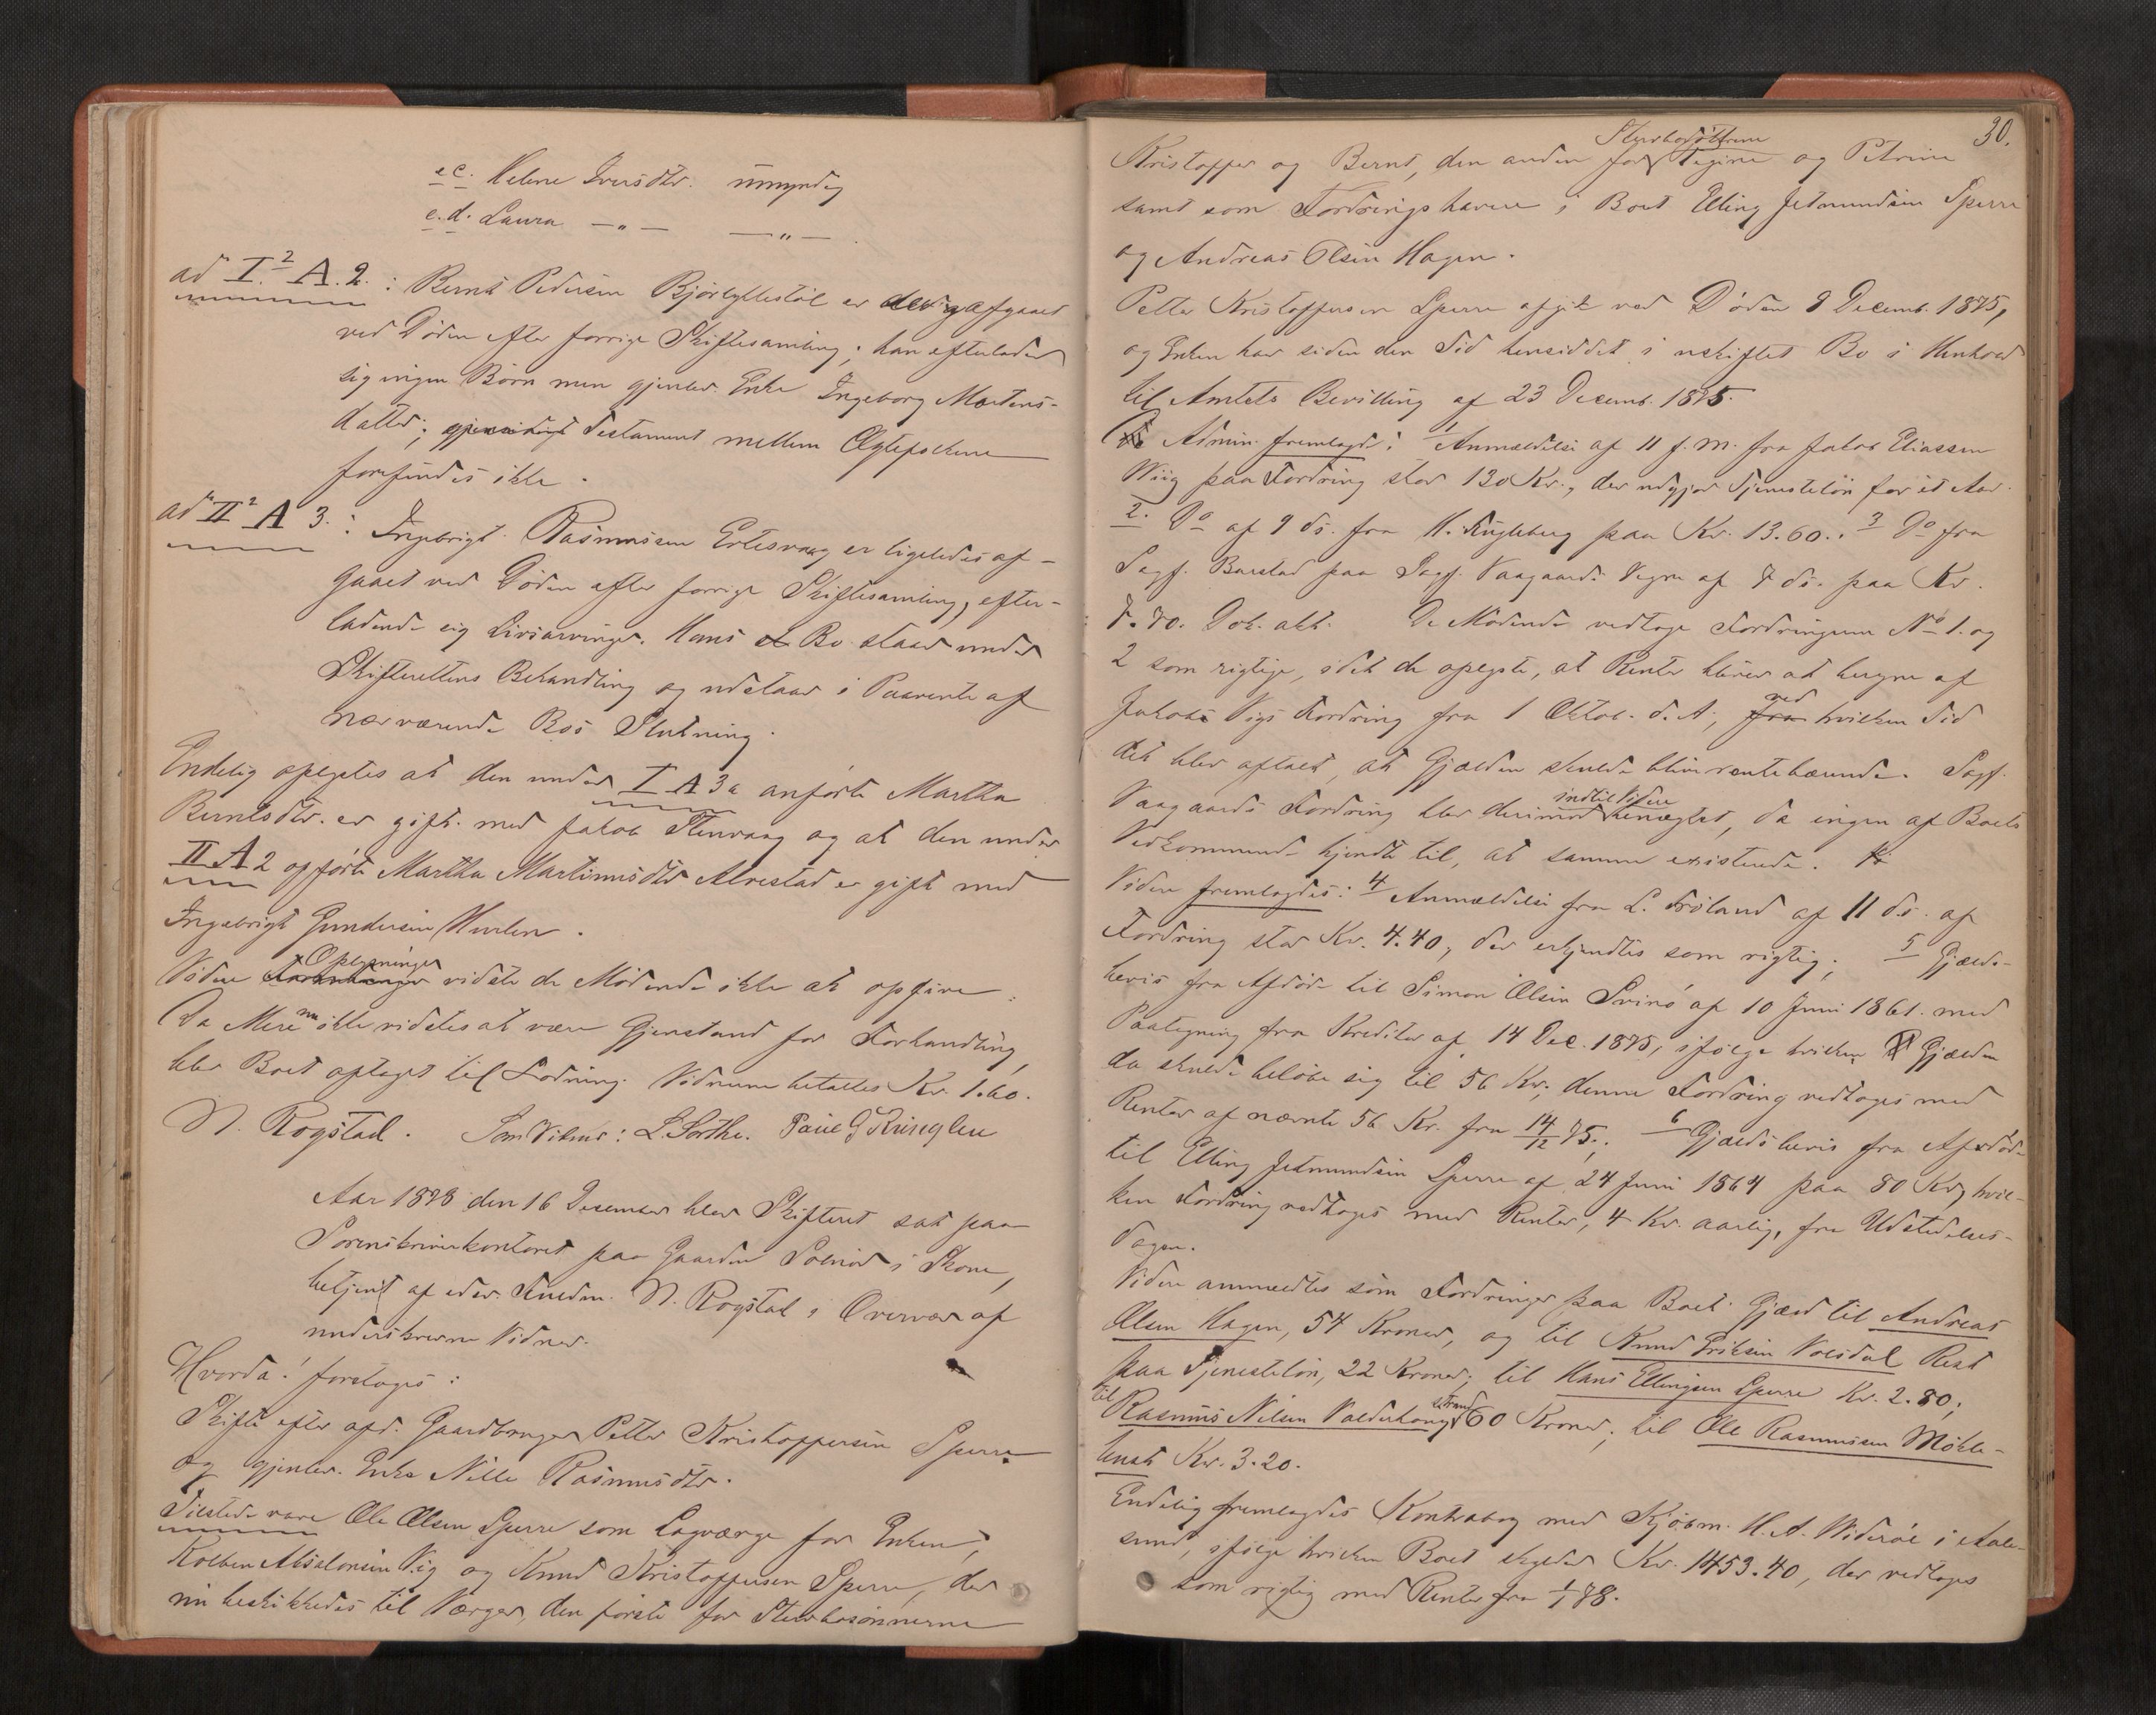 e c. Helene Iversdtr. umyndig
e. d. Laura —"— —"—.
ad I.² A. 2. : Bernt Pedersen Bjørlykkestøl er afgaaet
ved Døden efter forrige Skiftesamling; han efterlader
sig ingen Børn men gjenlev. Enke Ingeborg Martens-
datter; gjensidigt Testament mellem Ægtefolkene
forefindes ikke.
ad II² A 3. : Ingebrigt Rasmussen Eltesvaag er ligeledes af-
gaaet ved Døden efter forrige Skiftesamling, efter-
ladende sig Livsarvinger. Hans Bo staar under
Skifterettens Behandling og udstaar i Paavente af
nærværende Bos Slutning.
Endelig oplystes at den under I A 3a anførte Martha
Berntsdtr. er gift med Jakob Stenvaag og at den under
II A 2 opførte Martha Martinusdtr Alvestad er gift med
Ingebrigt Gundersen Hurlen.
Videre Oplysninger vidste de Mødende ikke at opgive.
Da Mere nu ikke vidstes at være Gjenstand for Forhandling,
blev Boet optaget til Lodning. Vidnerne betaltes Kr. 1.60.
N. Rogstad. Som Vidner: L. Sorthe. Paul G Kringlen
Aar 1878 den 16 December blev Skifteret sat paa
Sorenskriverkontoret paa Gaarden Solnør i Skone,
betjent af edsv. Fuldm. N. Rogstad i Overvær af
underskrevne Vidner.
Hvorda! foretoges:
Skifte efter afd. Gaardbruger Petter Kristoffersen Sperre
og gjenlev. Enke Nille Rasmusdtr.
Tilstede vare Ole Olsen Sperre som Lagværge for Enken,
Kolben Absalonsen Vig og Knud Kristoffersen Sperre, der
nu beskikkedes til Værger, den første for Stervbosønnerne
30.
Stervbodøttrene
Kristoffer og Bernt, den anden for Regine og Petrine
samt som Fordringshavere i Boet Elling Jetmundsen Sperre
og Andreas Olsen Hagen.
Petter Kristoffersen Sperre afgik ved Døden 8 Decemb. 1875,
og Enken har siden den Tid hensiddet i uskiftet Bo i Henhold
til Amtets Bevilling af 23 Decemb. 1875.
Admin. fremlagde: 1 Anmeldelse af 11 f. M. fra Jakob Eliassen
Wiig paa Fordring stor 130 Kr., der udgjør Tjenesteløn for et Aar.
2. Do af 9 ds. fra H. Kugleberg paa Kr. 13.60. 3 Do fra
Sagf. Barstad paa Sagf. Vaagaards Vegne af 7 ds. paa Kr.
7.70. Dok. akt. De Mødende vedtoge Fordringerne No 1. og
2 som rigtige, idet de oplyste, at Renter bliver at beregne af
Jakob Vigs Fordring fra 1 Oktob. d. A., ved hvilken Tid
det blev aftalt, at Gjælden skulde blive rentebærende. Sagf.
Vaagaards Fordring blev derimod indtil Videre benægtet, da ingen af Boets
Vedkommende kjendte til, at samme existerede.
Videre fremlagdes: 4 Anmældelse fra L. Frøland af 11 ds. af
Fordring stor Kr. 4.40, der erkjendtes som rigtig; 5 Gjælds-
bevis fra Afdøde til Simon Olsen Svinø af 10 Juni 1861. med
Paategning fra Kreditor af 14 Dec. 1875, ifølge hvilken Gjælden
da skulde beløbe sig til 56 Kr; denne Fordring vedtoges med
Renter af nævnte 56 Kr. fra 14/12 75.; 6 Gjældsbevis fra Afdøde
til Elling Jetmundsen Sperre af 24 Juni 1864 paa 80 Kr, hvil-
ken Fordring vedtoges med Renter, 4 Kr. aarlig, fra Udstedelses-
dagen.
Videre anmeldtes som Fordringer paa Boet: Gjæld til Andreas
Olsen Hagen, 54 Kroner, og til Knud Eriksen Volsdal Rest
paa Tjenesteløn, 22 Kroner; til Hans Ellingsen Sperre Kr. 2.80;
til Rasmus Nilsen Valderhougstrand 60 Kroner; til Ole Rasmussen Mökle-
bust Kr. 3.20.
Endelig fremlagdes Kontrabog med Kjøbm. H. A. Niderøe i Aale-
sund, ifølge hvilken Boet skylder Kr. 1453.40, der vedtoges
som rigtig med Renter fra 1/1 78.